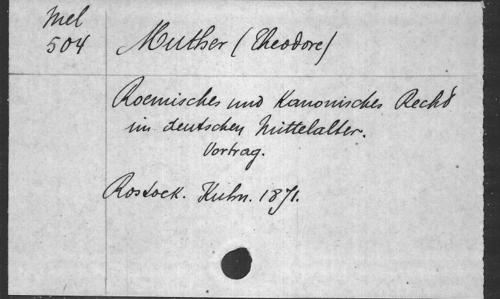 Mel
504
Muther (Theodore)
Roemisches und Kanonisches Recht
im deutschen Mittelalter.
Vortrag.
Rostock. Kuhn. 1871.